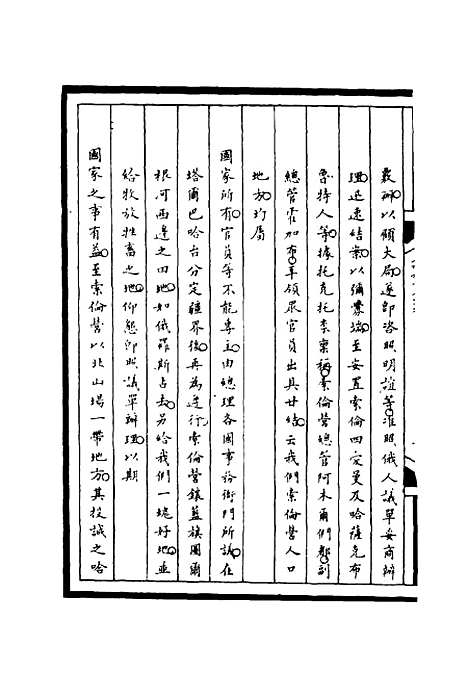 裝酬以顧大局遂即咨照明誼等准照俄人議單妥商辦
理迅速結案以彌釁端至安置索倫四安曼及哈薩克布
魯特人等據托克托奈稟稱索倫營總管阿木爾們都副
總管霍加布率領眾官員出具甘結云我們索倫營人口
地方均屬
國家所有官員等不能專主由總理各國事務衙門所議在
塔爾巴哈台分定疆界後再為遵行索倫營鑲藍旗圖爾
根河西邊之田地如俄羅斯占去另給我們一塊好地並
給牧放牲畜之地仰懇即照議單辦理以期
國家之事有益至索倫營以北山場一帶地方其投誠之哈